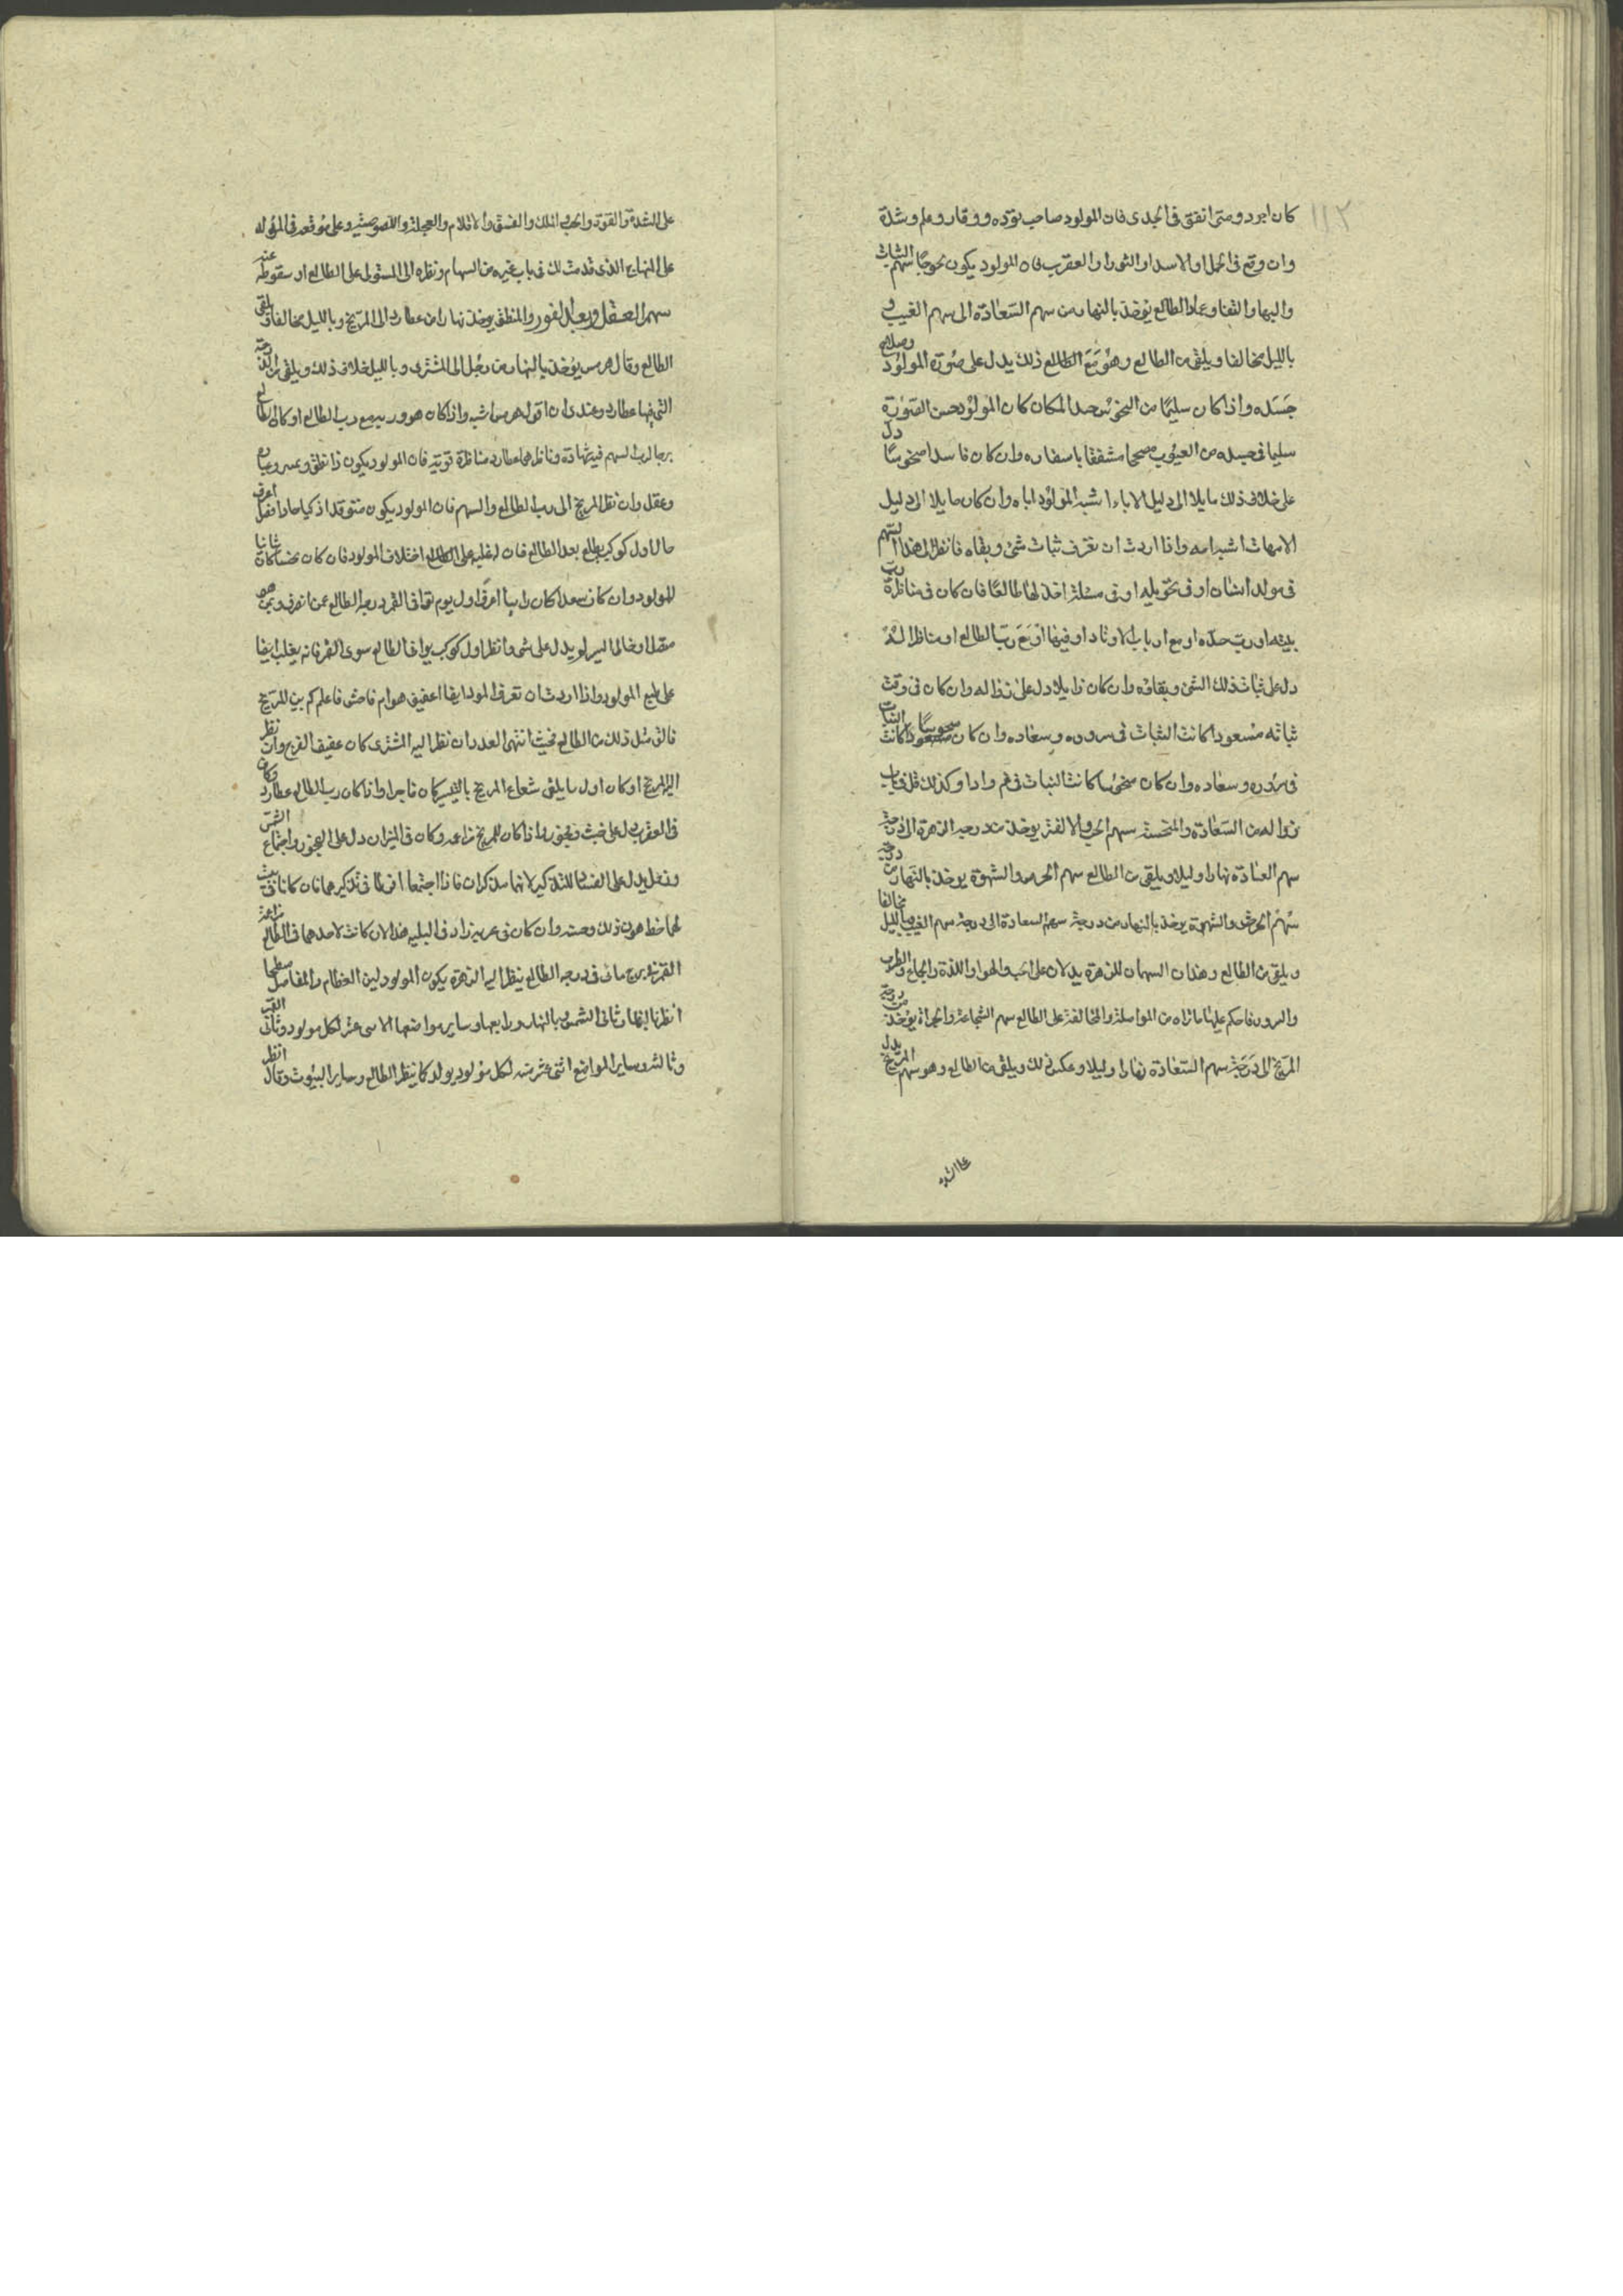 ١١٢
كان ابرد ومتى اتفق فى الجدى فان المولود صاحب تؤده ووقار وعلم وشدة
وان وقع فى الحمل او الاسد او الثور او العقرب فان المولود يكون سهم الثبات
والبها والبقا وعماد الطالع يؤخذ بالنهار من سهم السعادة الى سهم الغيب و
بالليل مخالفا ويلقى من الطالع وهو مع الطالع ذلك يدل على صورة المولود وصلاح
جسده واذا كان سليما من النحوس جيد المكان كان المولود حسن الصورة
سليما فى جسده من العيوب صحيحا باسفاره وان كان فاسدا منحوسا دل
على خلاف ذلك مايلا الى دليل الاباء اشبه المولود اباه وان كان مايلا الى دليل
الامهات اشبه امه واذا اردت ان تعرف ثبات شئ وبقاه فانظر الى هذا السهم
فى مولد انسان او فى تحويله او فى مسئلة اخذ لها طالعا فان كان فى مناظرة رب
بيته او رب حده او مع ارباب الاوتاد او فيها او مع رب الطالع او مناظرا له
دل على ثبات ذلك الشئ وبقائه وان كان زايلا دل على زواله وان كان فى وقت
ثباته مسعودا كانت الثبات فى سروره وسعاده وان كان منحوسا كانت الثبات
فى سروره وسعاده وان كان منحوسا كانت الثبات فى غم واذا وكذلك قل فى باب
زواله من السعادة والمنحسة سهم الحب والالفة يوخذ من درجه الزهرة الى درجة
سهم السعادة نهارا وليلا ويلقى من الطالع سهم الحرص والشهوة يوخذ بالنهار من درجة
سهم الحرص والشهوة يوخذ بالنهار من درجة سهم السعادة الى درجة سهم الغيب وبالليل مخالفا
ويلقى من الطالع وهذان السهمان للزهرة يدلان على الحب والهوا واللذة والجماع والطرب
والسرور فاحكم عليها ماتراه من المواصلة والمخالفة على الطالع سهم الشجاعة والجراة يؤخذ من درجة
المريخ الى درجة سهم السعادة نهارا وليلا وعكس ذلك ويلقى من الطالع وهو سهم المريخ يدل
على الشدة
على الشدة والقوة والحرب والفسق والاقدام والعجلة واللصوصية وعلى موقعه فى المولد
على المنهاج الذى قدمت لك فى باب غيره من السهام ونظره الى المستولى على الطالع او سقوطه عنه
سهم العقل والمنطق يوخذ نهارا من عطارد الى المريخ وبالليل مخالفا ويلقى
الطالع وقال هرمس يؤخذ بالنهار من زحل الى المشترى وبالليل خلاف ذلك ويلقى من الدرجة
التى فيها عطارد وعندى ان قول هرمس اشبه واذا كان هو وربه مع رب الطالع او كان الطالع
برجا لرب السهم فيه شهادة وناظرهما عطارد مناظرة قوية فان المولود يكون ذا نطق
وعقل وان نظر المريخ الى رب الطالع والسهم فان المولود يكون متوقدا ذكيا حادا اعرف
حال اول كوكب يطلع بعد الطالع فان له غلبه على الطالع اختلاف المولود فان كان نحسا كان
للمولود وان كان سعدا كان اعرف اول يوم القمر درجة الطالع عن انصرف وبمن هو
متصل او خالى السير او يدل على شى وانظر اول كوكب يوافى الطالع سوى القمر فانه يغلب ايضا
على طبع المولود واذا اردت ان تعرف المولود ايضا اعفيف هو ام فاحش فاعلم كم بين المريخ
فالق مثل ذلك من الطالع فحيث انتهى العدد ان نظر اليه المشترى كان عفيف الفرج وان نظر
اليه المريخ او كان اول ما يلقى شعاع المريخ بالتسيير كان فاجرا واذا كان رب الطالع عطارد وكان
فى العقرب دل على خبث وفجور واذا كان للمريخ مزاعمه وكان فى الميزان دل على الفجور واجتماع الشمس
وزحل يدل على الفساد للتذكير لانهما مذكران فاذا اجتمعا افرطا فى تذكيرهما فان كانا فى بيت
لهما حظ هون ذلك وحسنه وان كان فى غربه زاد فى البليه هذا الا ان كانت لاحدهما فى الطالع مزاعمة
القمر فى برج مائى فى درجه الطالع ينظر اليه الزهرة يكون المولود لين العظام والمفاصل
انظر ثانى الشمس بالنهار ورابعها وساير مواضعها الاثنى عشر لكل مولود وثانى القمر
وثالثه وساير المواضع اثنى عشرية لكل مولود يولد كما ينظر الطالع وساير البيوت وقال انظر